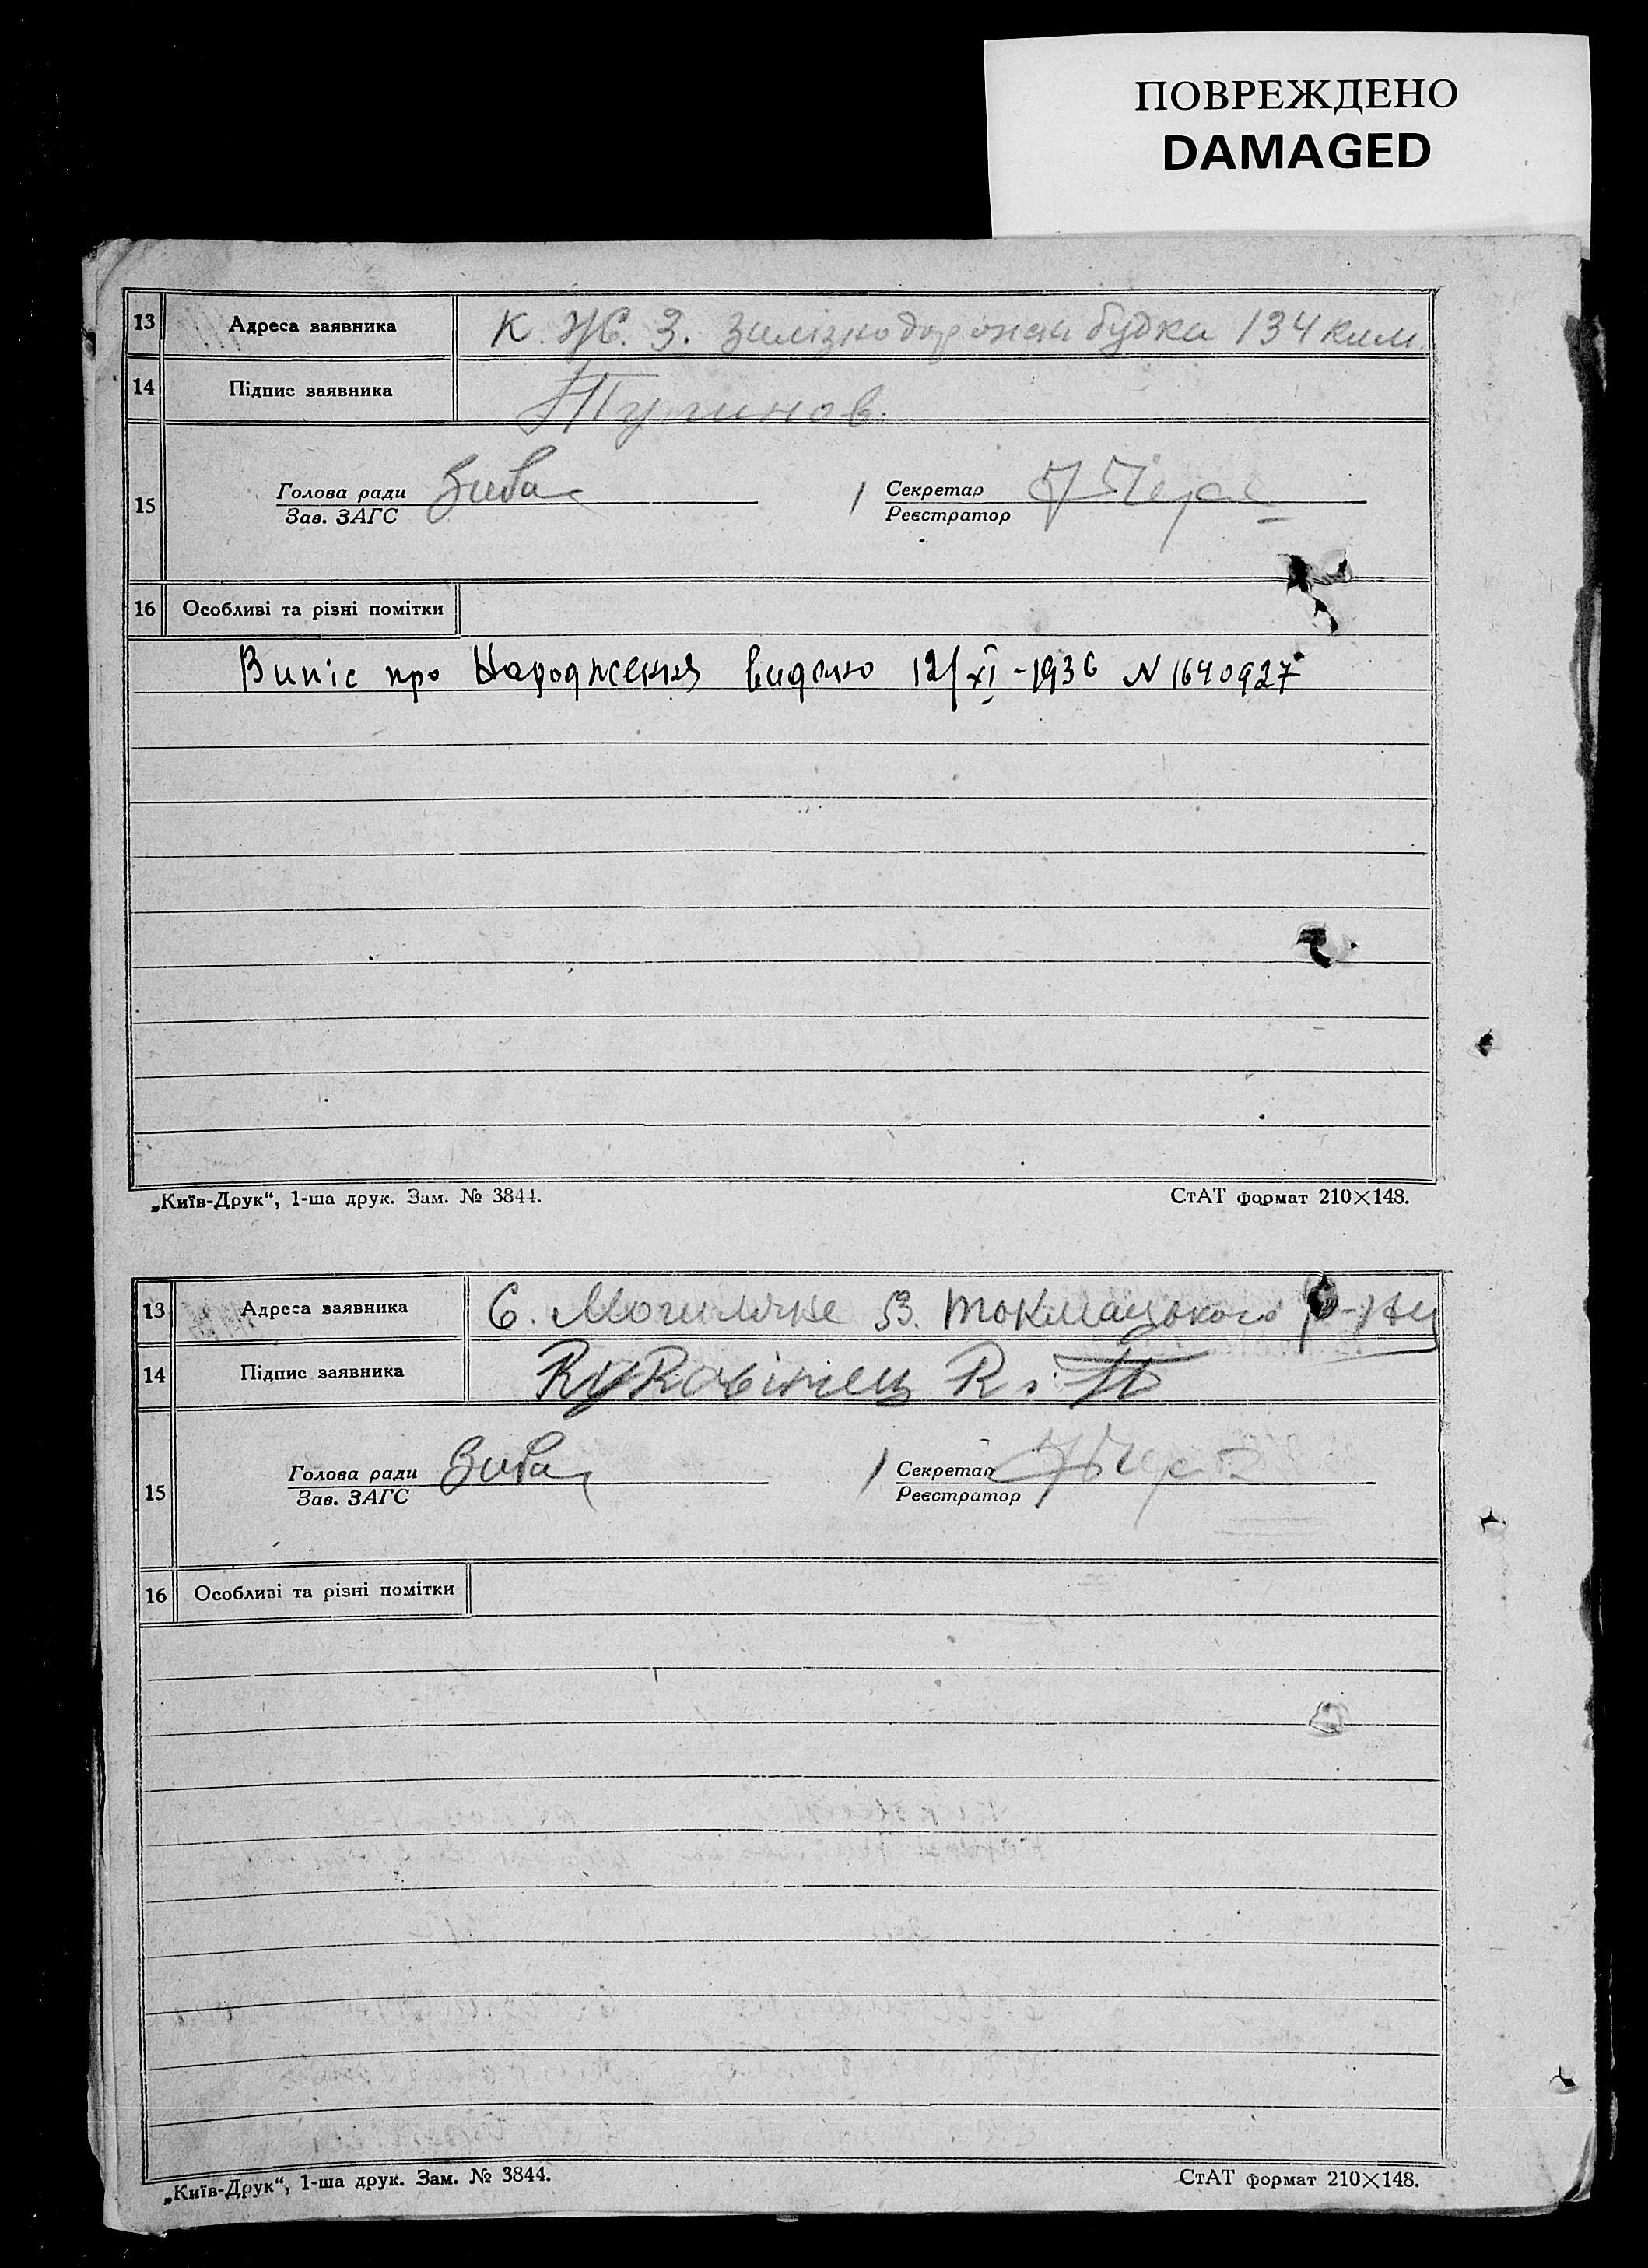 ПОВРЕЖДЕНО
DAMAGED
13 Адреса заявника К. Ж. З. Залізнодорожня будка 134 клм.
14 Підпис заявника
15 Голова ради Секретар
Зав. ЗАГС Реєстратор
16 Особливі та різні помітки
Випіс про Народження видано 12/XI-1936 N 1640927
„Київ-Друк“, 1-ша друк. Зам. № 3844. СтАТ формат 210×148.
13 Адреса заявника С. В. Токмацького р-ну
14 Підпис заявника
15 Голова ради Секретар
Зав. ЗАГС Реєстратор
16 Особливі та різні помітки
„Київ-Друк“, 1-ша друк. Зам. № 3844. СтАТ формат 210×148.